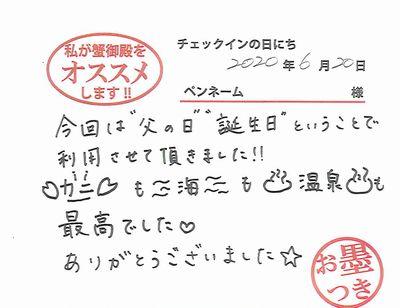 私が蟹御殿を
オススメ
します!!
チェックインの日にち
2020年6月20日
ペンネーム 様
今回は"父の日""誕生日"ということで
利用させて頂きました!!
ガニも海も温泉も
最高でした♡
ありがとうございました☆
お墨
つき